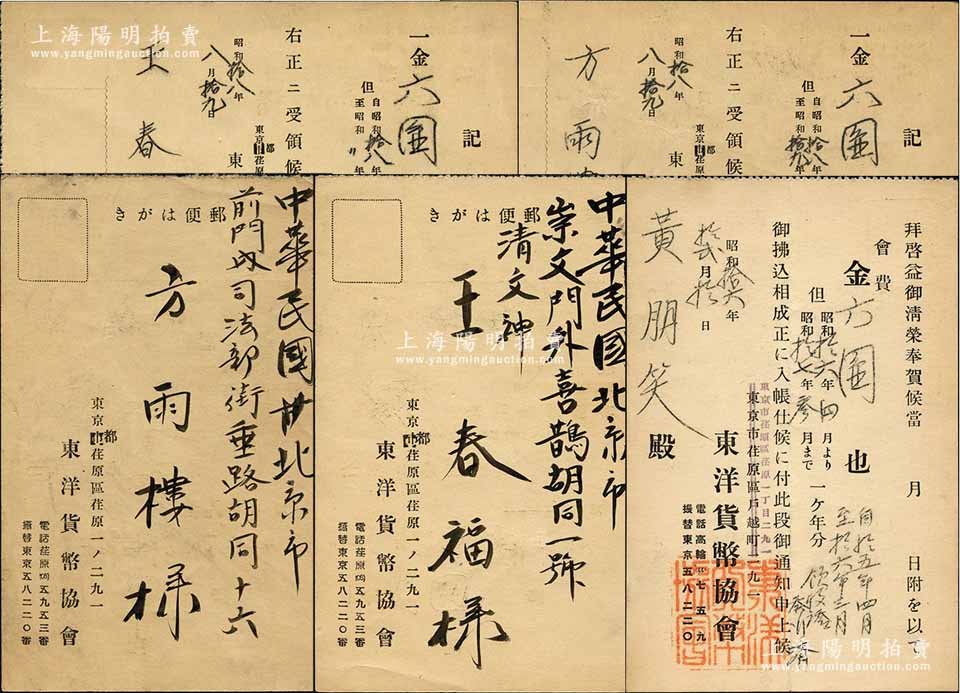 上海陽明拍賣
www.yangmingauction.com
記
一金六圓
但
自昭和拾八年
至昭和拾九年
右正ニ受領候
昭和拾八年
八月拾九日
東京都荏原
東
方雨
記
一金六圓
但
自昭和拾八年
至昭和〃年
右正ニ受領候
昭和拾八年
八月拾九日
東京都荏原
東
王春
拜啓益御淸榮奉賀候當 月 日附を以て
會費
金六圓也
但
昭和拾六年四月より
昭和拾七年參月まで
一ケ年分
自拾五年四月
至拾六年三月
領收濟
御拂込相成正に入帳仕候に付此段御通知申上候
昭和拾六年
月 日
黃朋笑殿
東京市荏原區荏原一丁目二九一
東京市荏原區戶越町二九一
東洋貨幣協會
電話高輪七五九
振替東京五八二二〇
東洋貨幣協會
郵便はがき
中華民國北京市
崇文門外喜鵲胡同一號
清文神
王春福樣
東京都荏原區荏原一ノ二九一
東洋貨幣協會
電話荏原五九五三番
振替東京五八二二〇番
郵便はがき
中華民國北京市
前門內司法部街垂路胡同十六
方雨樓樣
東京都荏原區荏原一ノ二九一
東洋貨幣協會
電話荏原五九五三番
振替東京五八二二〇番
上海陽明拍賣
www.yangmingauction.com
上海陽明拍賣
www.yangmingauction.com
上海陽明拍賣
www.yangmingauction.com